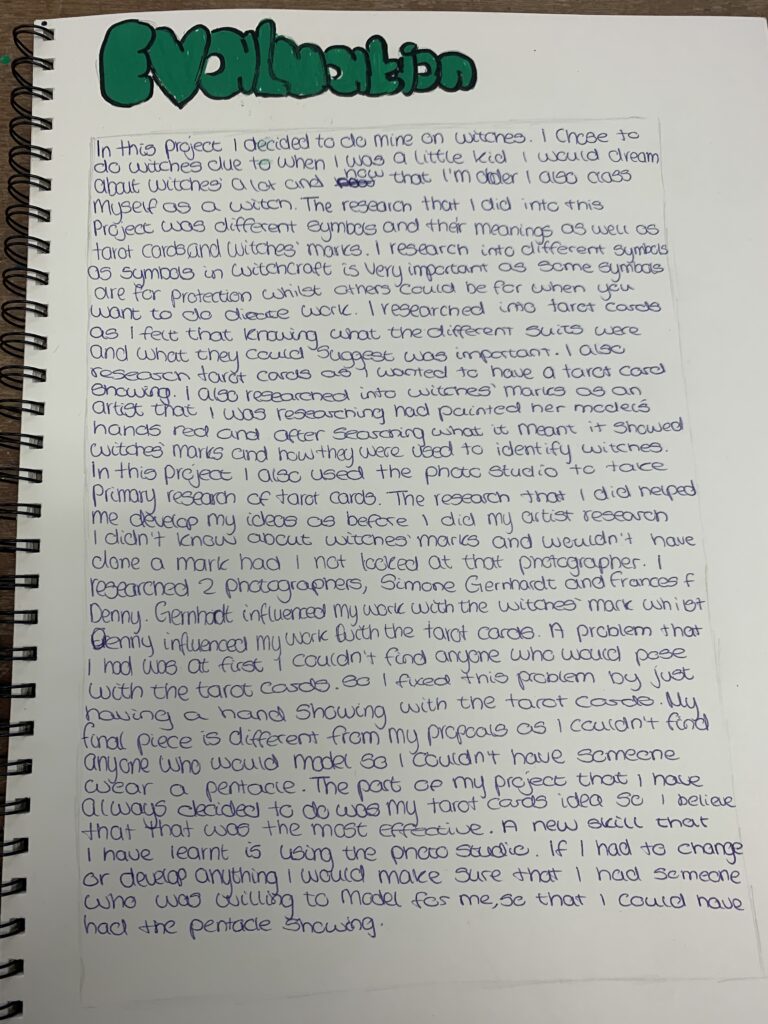 Evaluation
In this project I decided to do mine on witches. I chose to
do witches due to when I was a little kid I would dream
about witches alot and now that I'm older I also class
myself as a witch. The research that I did into this
Project was different symbols and their meanings as well as
tarot cards and witches' marks. I research into different symbols
as symbols in witchcraft is very important as some symbols
are for protection whilst others could be for when you
want to do work. I researched into tarot cards
as I felt that knowing what the different suits were
and what they could suggest was important. I also
research tarot cards as I wanted to have a tarot card
showing. I also researched into witches' marks as an
artist that I was researching had painted her models
hands red and after searching what it meant it showed
witches' marks and how they were used to identify witches.
In this project I also used the photo studio to take
Primary research of tarot cards. The research that I did helped
me develop my ideas as before I did my artist research
I didn't know about witches' marks and wouldn't have
done a mark had I not looked at that photographer. I
researched 2 photographers, Simone Gernhardt and Frances F
Denny. Gernhadt influenced my work with the witches' mark whilst
Denny influenced my work with the tarot cards. A problem that
I had was at first I couldn't find anyone who would pose
with the tarot cards. So I fixed this problem by just
having a hand showing with the tarot cards. My
final piece is different from my propoals as I couldn't find
anyone who would model so I couldn't have someone
wear a pentacle. The part of my project that I have
always decided to do was my tarot cards idea so I believe
that that was the most effective. A new skill that
I have learnt is using the photo studio. If I had to change
or develop anything I would make sure that I had someone
who was willing to model for me, so that I could have
had the pentacle showing.